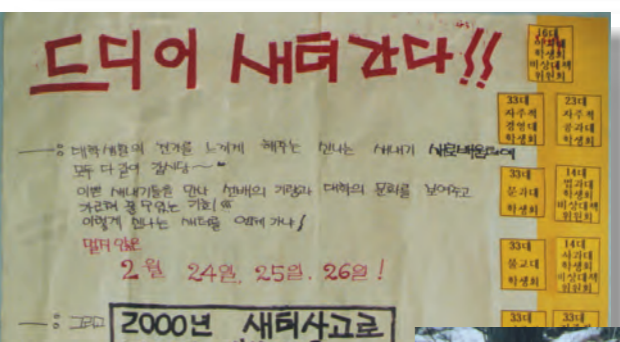 드디어 새터 간다!!
대학생활의 진가를 느끼게 해주는 신나는 새내기 새로배움터에
모두 다 같이 갑시당~
이쁜 새내기들을 만나 선배의 기량과 대학의 문화를 보여주고
가르쳐 줄 수 있는 기회!!!
이렇게 신나는 새터를 언제 가나!
멀지 않은
2월 24일, 25일, 26일!
그리고 2000년 새터사고로
16대
학생회
비상대책
위원회
33대
자주적
경영대
학생회
23대
자주적
공과대
학생회
33대
문과대
학생회
14대
법과대
학생회
비상대책
위원회
33대
불교대
학생회
14대
사과대
학생회
비상대책
위원회
33대
33대